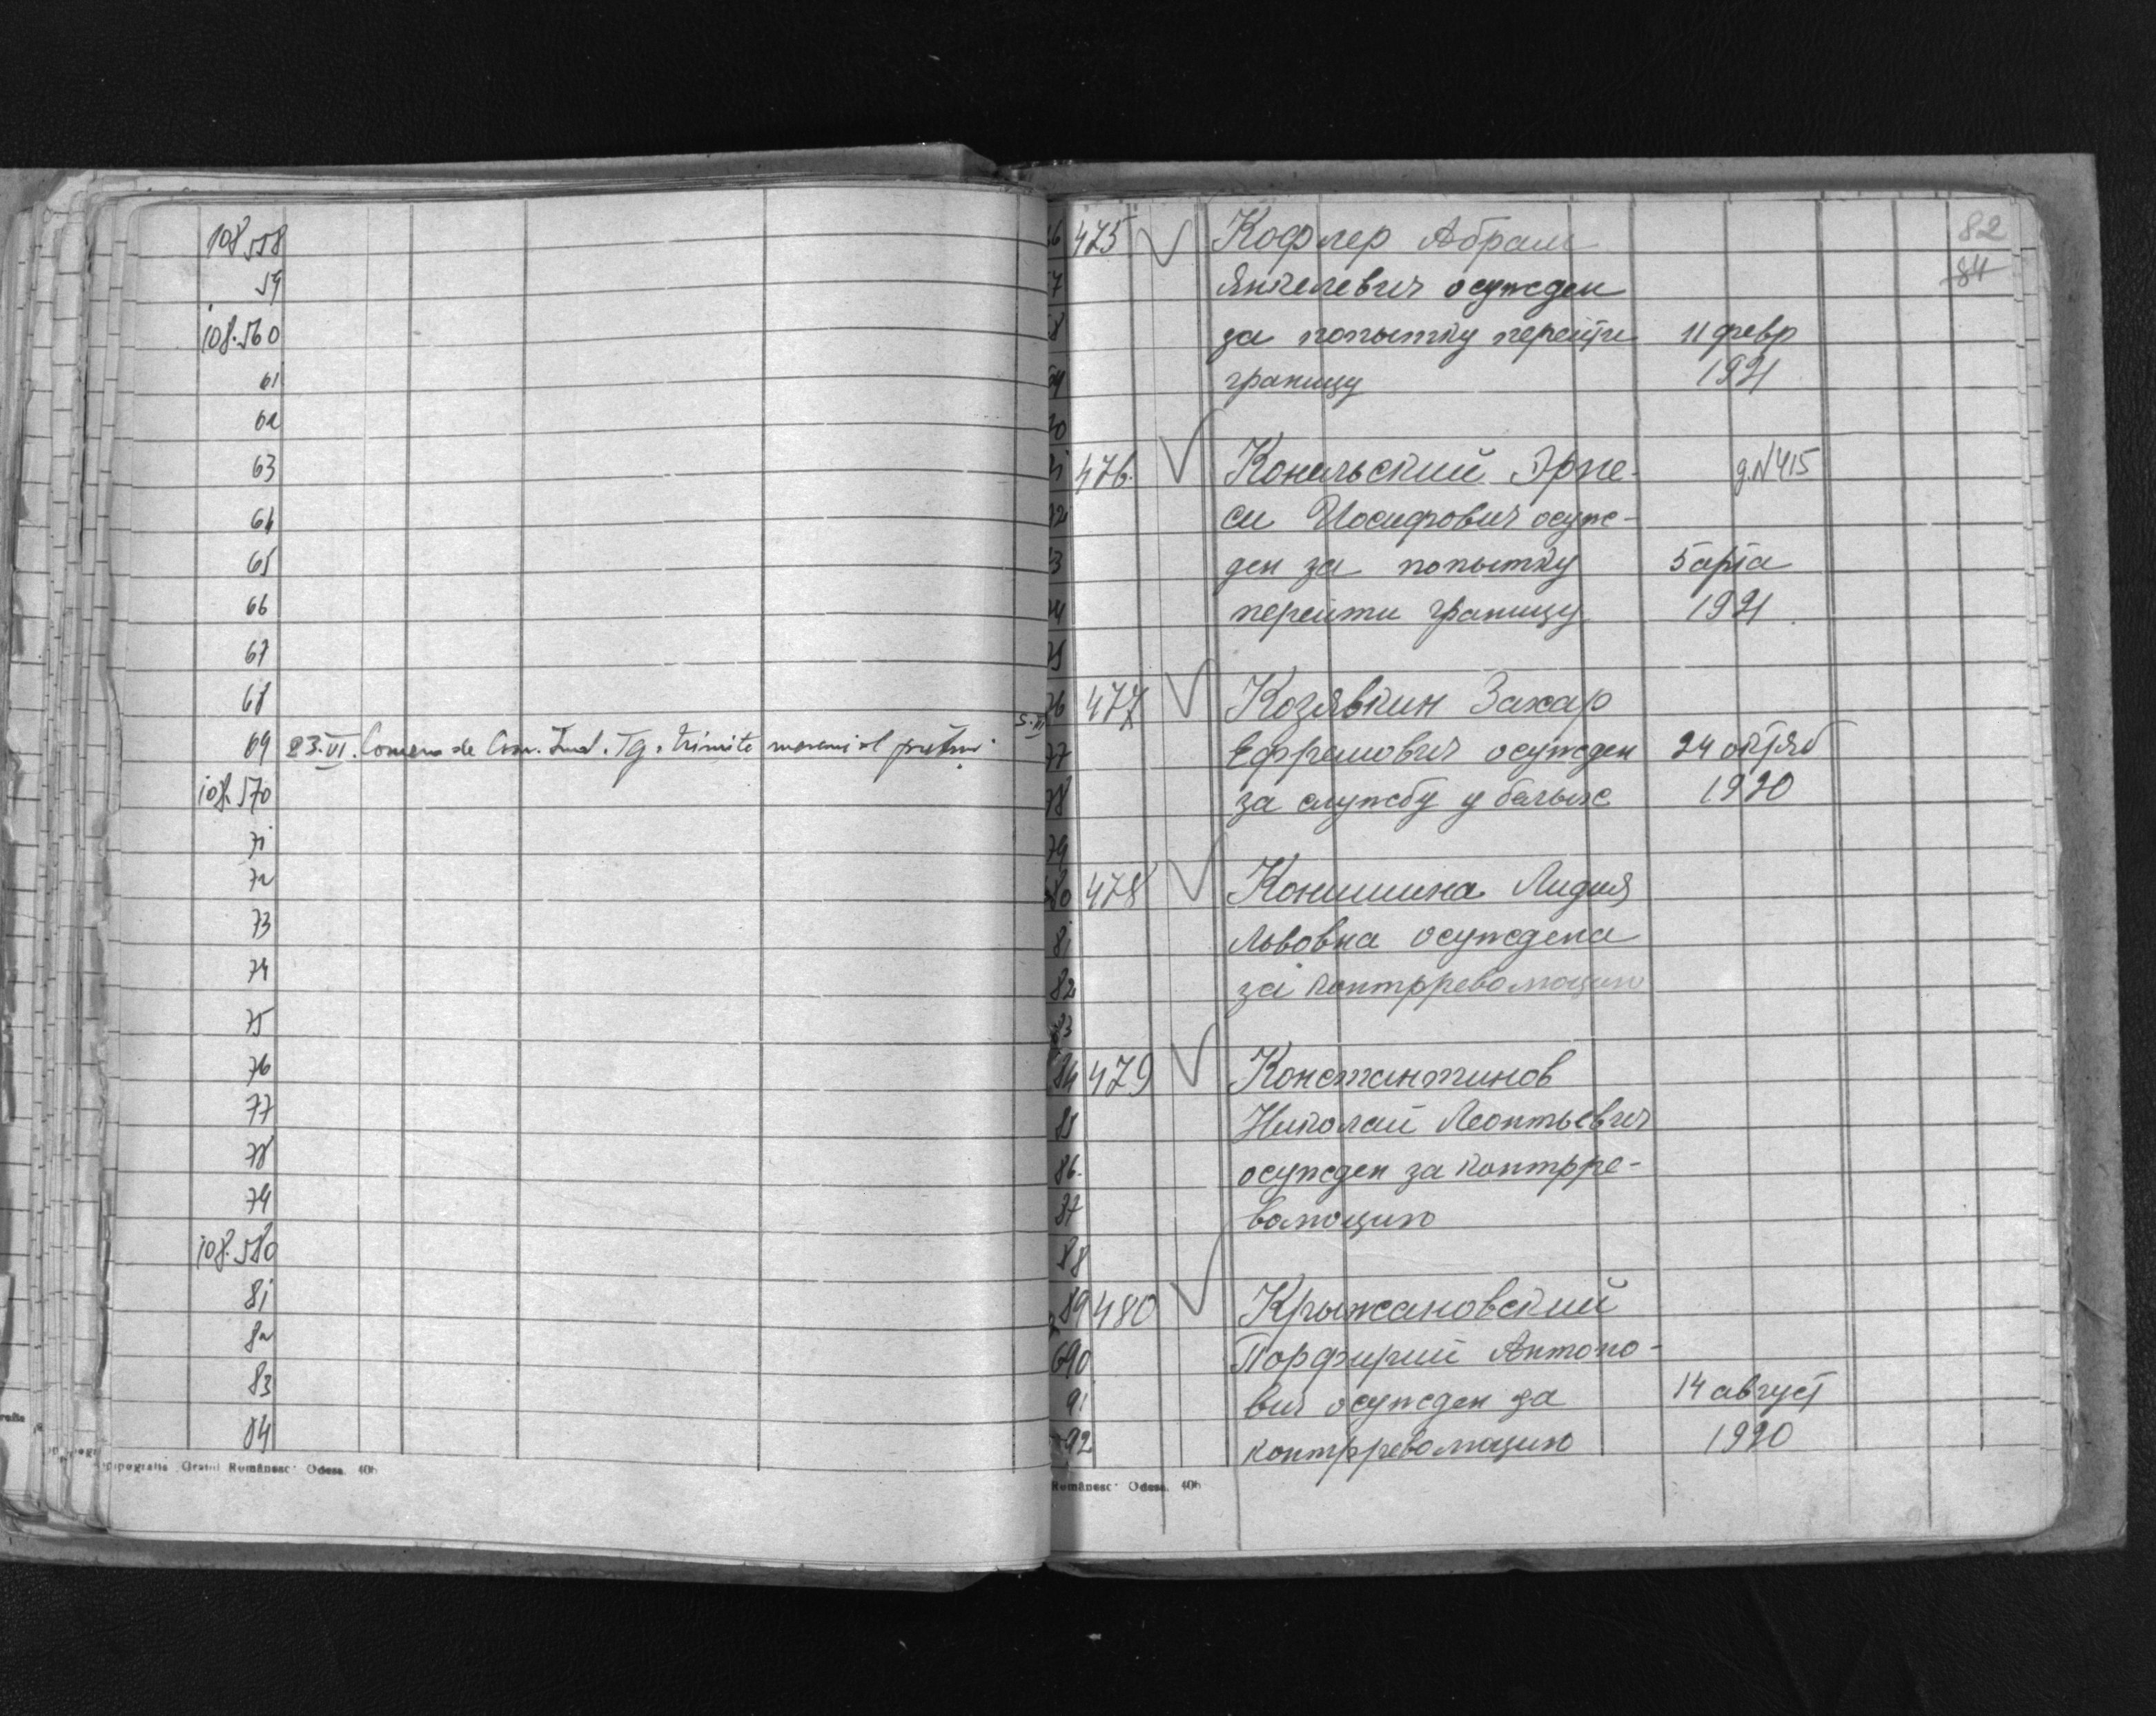 108.558
59
108.560
61
62
63
64
65
66
67
68
69 23.VI. de Com. Jud. Tg. trimite
108.570
71
72
73
74
75
76
77
78
79
108.580
81
82
83
84
Tipografia „Graiul Românesc" Odesa. 406
82
84
475 Кофлер Абрам
Янкелевич осужден
за попытку перейти 11 февр
границу 1921
476. Конильский Эрне-
д.N415
ст Иосифович осуж-
ден за попытку 5 апр
перейти границу 1921
5.VI
76 477 Козявкин Захар
77 Ефремович осужден 24 октяб
78 за службу у белых 1920
79
80 478 Конишина Лидия
81 Львовна осуждена
82 за контрреволюцию
83
84 479 Константинов
85 Николай Леонтьевич
86. осужден за контрре-
87 волюцию
88
89 480 Крыжановский
690 Порфирий Антоно-
91 вич осужден за 14 август
92 контрреволюцию 1920
Românesc" Odesa. 406